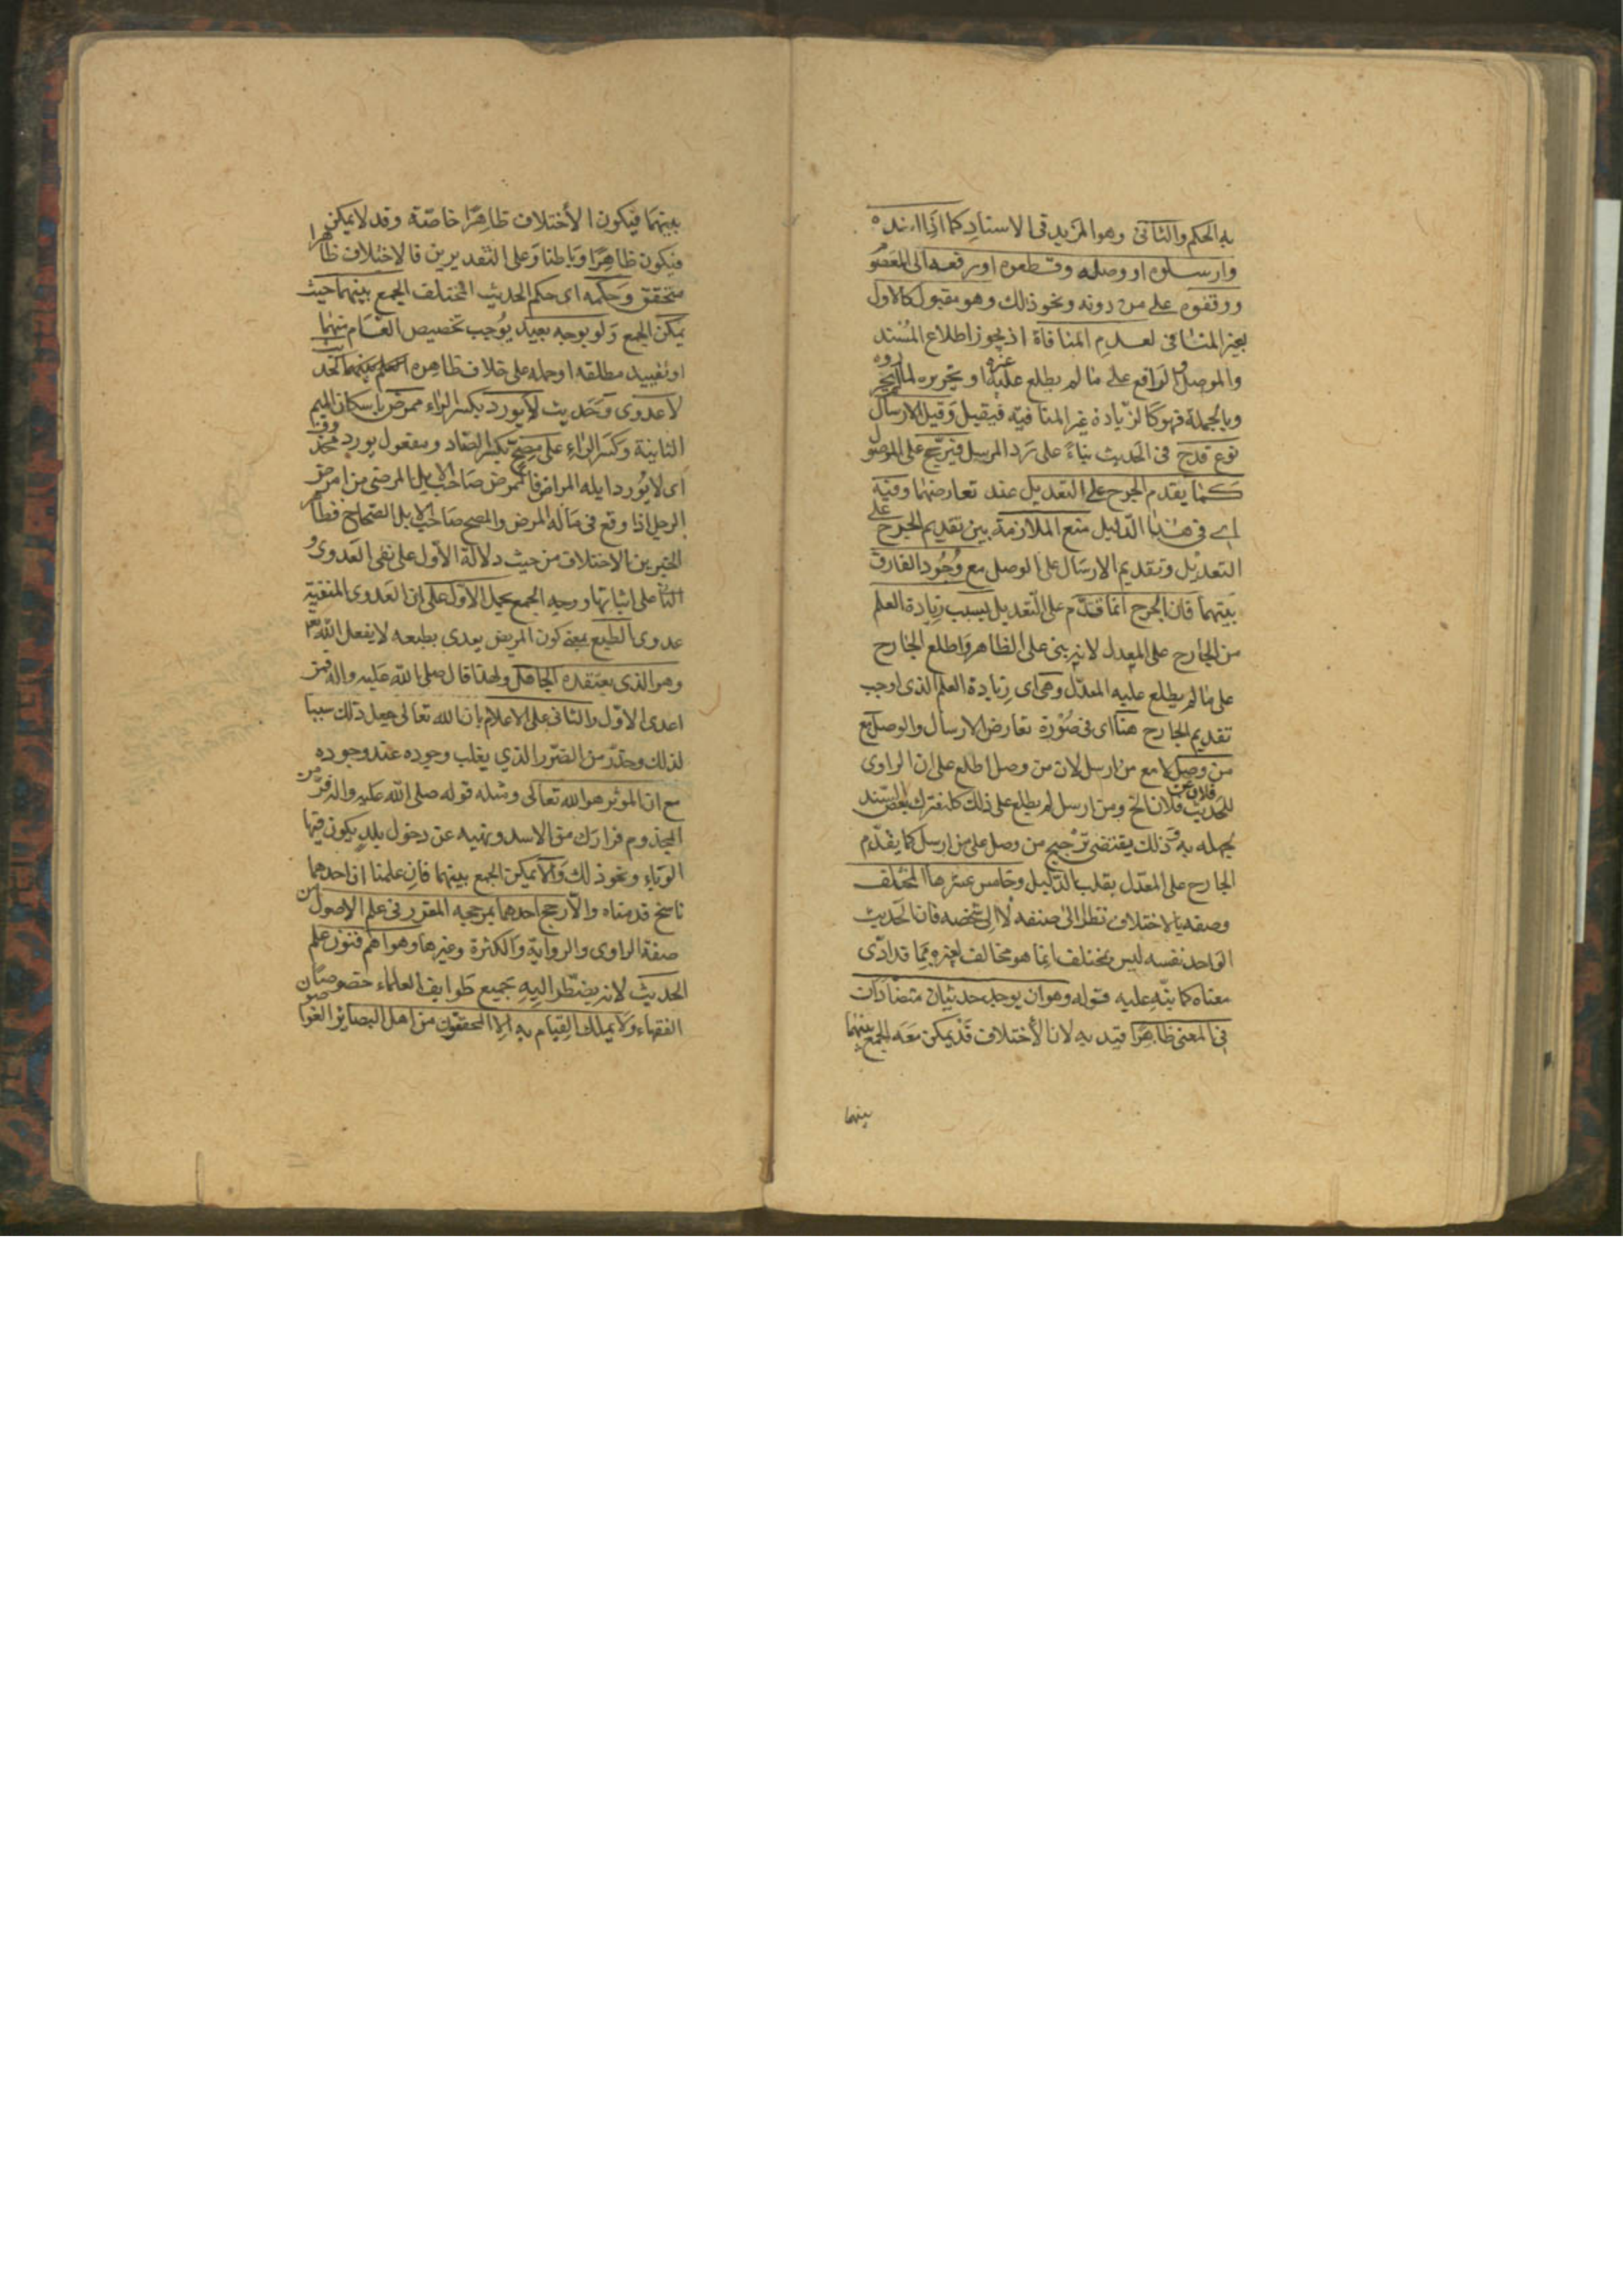 به الحكم والثانى وهو المزيد فى الاسناد كما اذا اسنده
وارسلوه او وصله وقطعوه او رفعه الى المعصوم
ووقفوه على من دونه ونحو ذلك وهو مقبول كالاول
غير المنافى لعدم المنافاة اذ يجوز اطلاع المسند
والموصل والواقع على ما لم يطلع عليه غيره او تحريره لما لم يحرروه
وبالجملة فهو كالزيادة غير المنافية فيقبل وقيل الارسال
نوع قدح فى الحديث بناء على رد المرسل فيرجح على الموصول
كما يقدم الجرح على التعديل عند تعارضهما وفيه
اى فى هذا الدليل منع الملازمة بين تقديم الجرح على
التعديل وتقديم الارسال على الوصل مع وجود الفارق
بينهما فان الجرح انما قدم على التعديل بسبب زيادة العلم
من الجارح على المعدل لانه بنى على الظاهر واطلع الجارح
على ما لم يطلع عليه المعدل وهى اى زيادة العلم الذى اوجب
تقديم الجارح هنا اى فى صورة تعارض الارسال والوصل مع
من وصل لا مع من ارسل لان من وصل اطلع على ان الراوى
للحديث فلان عن فلان الخ ومن ارسل لم يطلع على ذلك كله فترك بعض السند
لجهله به وذلك يقتضى ترجيح من وصل على من ارسل كما يقدم
الجارح على المعدل بقلب الدليل وخامس عشرها المختلف
وصفه بالاختلاف نظرا الى صنفه لا الى شخصه فان الحديث
الواحد نفسه ليس بمختلف انما هو مخالف لغيره مما قد ادى
معناه كما ينبه عليه قوله وهو ان يوجد حديثان متضادان
فى المعنى ظاهرا قيد به لان الأختلاف قد يمكن معه الجمع بينهما
بينهما
بينهما فيكون الأختلاف ظاهرا خاصة وقد لا يمكن
فيكون ظاهرا وباطنا وعلى التقديرين فالاختلاف ظاهرا
متحقق وحكمه اى حكم الحديث المختلف الجمع بينهما حيث
يمكن الجمع ولو بوجه بعيد يوجب تخصيص العام منهما
او تقييد مطلقه او حمله على خلاف ظاهره كحديث
لا عدوى وحديث لا يورد بكسر الراء ممرض باسكان الميم
الثانية وكسر الراء على مصح بكسر الصاد ومفعول يورد محذوف
اى لا يورد ابله المراض فالممرض صاحب الابل المرضى من امرض
الرجل اذا وقع فى ماله المرض والمصح صاحب الابل الصحاح فظاهر
الخبرين الاختلاف من حيث دلالة الأول على نفى العدوى و
الثانى على اثباتها ووجه الجمع بحمل الأول على ان العدوى المنفية
عدوى الطبع بمعنى كون المريض يعدى بطبعه لا بفعل الله تعالى
وهو الذى يعتقده الجاهل ولهذا قال صلى الله عليه واله فمن
اعدى الاول والثانى على الاعلام بان الله تعالى جعل ذلك سببا
لذلك وحذر من الضرر الذي يغلب وجوده عند وجوده
مع ان الموثر هو الله تعالى ومثله قوله صلى الله عليه واله فر من
المجذوم فرارك من الاسد ونهيه عن دخول بلد يكون فيها
الوباء ونحو ذلك والا يمكن الجمع بينهما فان علمنا ان احدهما
ناسخ قدمناه والا رجح احدهما بمرجحه المقرر فى علم الاصول من
صفة الراوى والرواية والكثرة وغيرها وهو اهم فنون علم
الحديث لانه يضطر اليه جميع طوايف العلماء خصوصا
الفقهاء ولا يملك القيام به الا المحققون من اهل البصائر الغواصون